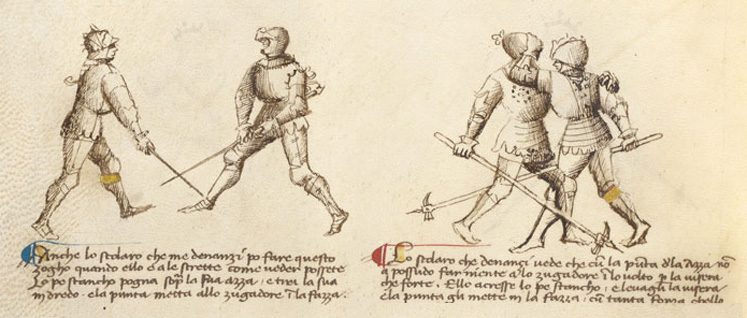 Anche lo scolaro che me denanzi po fare questo
zogho quando ello è a le strette come veder possete
Lo pe stancho pogna sopra la sua azza, e trai la sua
indredo. e la punta metta allo zugadore in la fazza.
Lo scolaro che denançi vede che cum la punta de la azza no
a possudo far niente a lo zugadore in lo volto per la visera
che forte. Ello acresse lo pe stancho, e levagli la visera
e la punta gli mette in la fazza, cum tanta forza